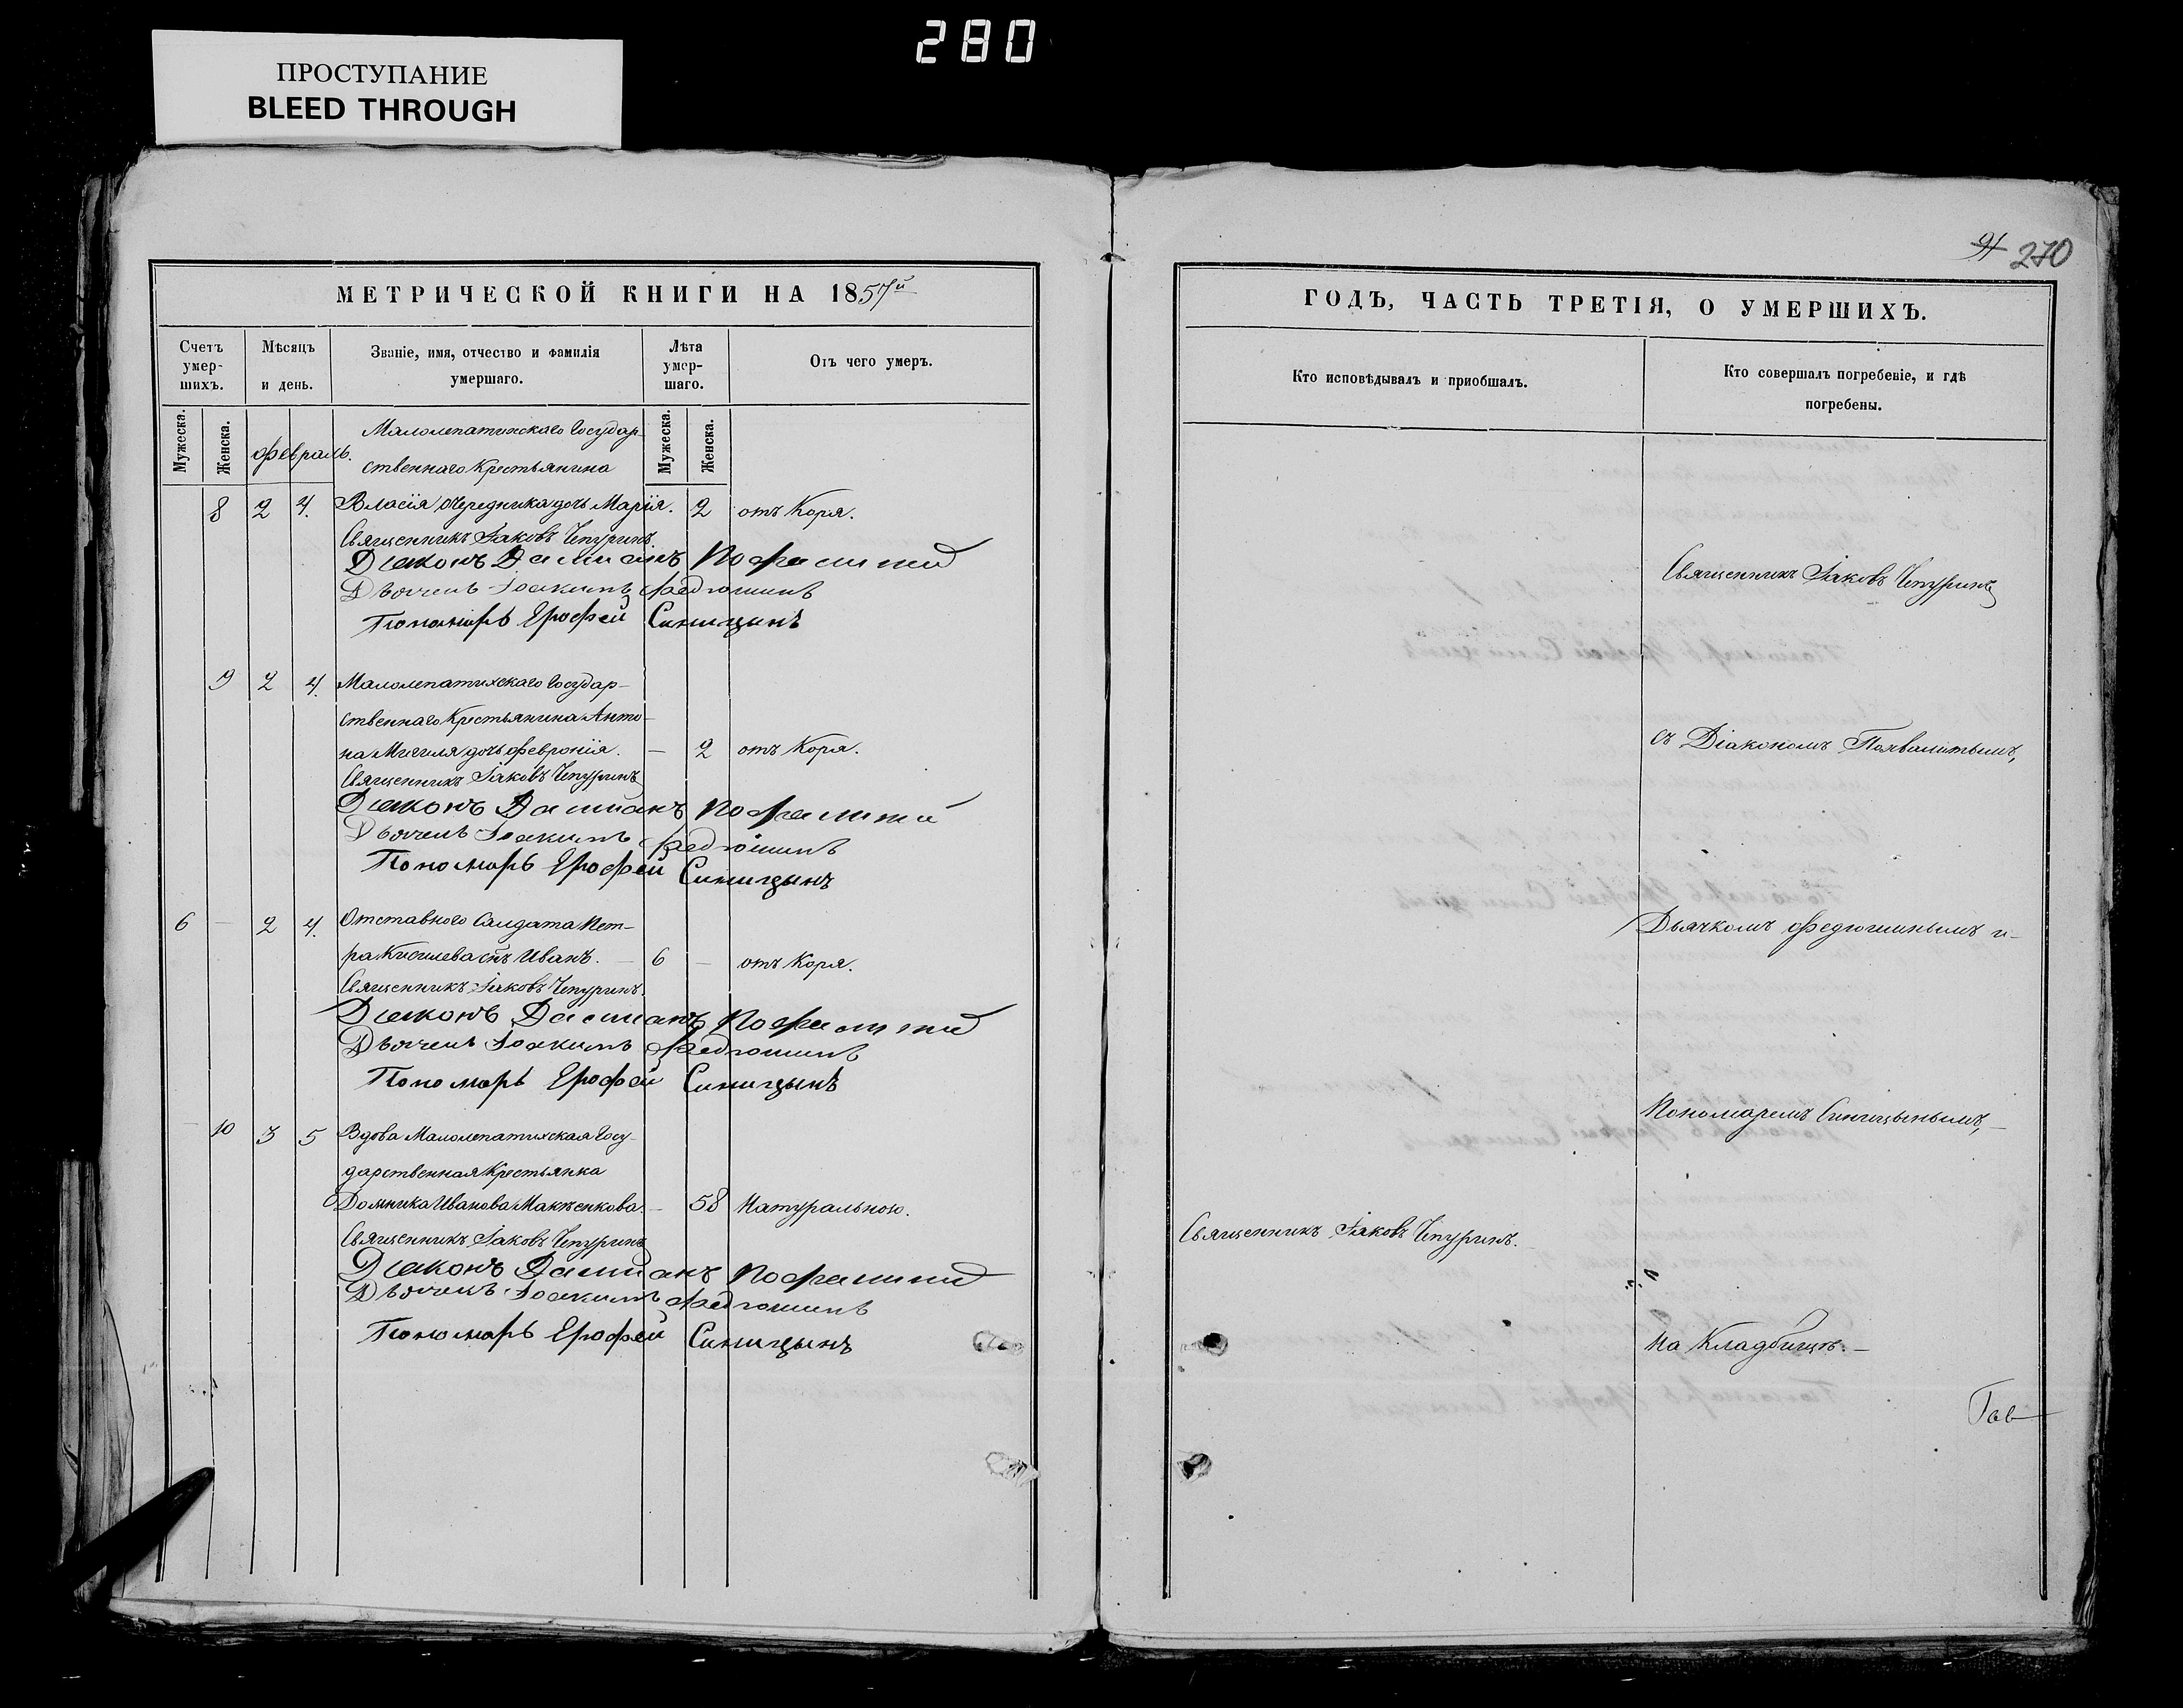 280
ПРОСТУПАНИЕ
BLEED THROUGH
270
МЕТРИЧЕСКОЙ КНИГИ НА 1857й
Счетъ умер-шихъ.
Мѣсяцъ и день.
Званіе, имя, отчество и фамилія умершаго.
Лѣта умер-шаго.
Отъ чего умеръ.
Мужеска.
Женска.
февраль.
Мужеска.
Женска.
Малолепатихскаго Государ-
ственнаго Крестьянина
8 2 4. Власія Чередника дочь Марія. 2 отъ Коря.
Священникъ Іаковъ Чепуринъ
Діаконъ Даміанъ
Дьячекъ Іоакимъ Федюшинъ
Пономарь Ерофей Синицынъ
9 2 4. Малолепатихскаго Государ-
ственнаго Крестьянина Анто-
на дочь Февронія. — 2 отъ Коря.
Священникъ Іаковъ Чепуринъ
Діаконъ Даміанъ
Дьячекъ Іоакимъ Федюшинъ
Пономарь Ерофей Синицынъ
6 — 2 4. Отставного Салдата Пет-
ра Киселева снъ Иванъ. — 6 — отъ Коря.
Священникъ Іаковъ Чепуринъ.
Діаконъ Даміанъ
Дьячекъ Іоакимъ Федюшинъ
Пономарь Ерофей Синицынъ
— 10 3 5 Вдова Малолепатихская Госу-
дарственная Крестьянка
Домника Иванова — 58 Натуральною.
Священникъ Іаковъ Чепуринъ
Діаконъ Даміанъ
Дьячекъ Іоакимъ Федюшинъ
Пономарь Ерофей Синицынъ
ГОДЪ, ЧАСТЬ ТРЕТІЯ, О УМЕРШИХЪ.
Кто исповѣдывалъ и приобщалъ.
Кто совершалъ погребеніе, и гдѣ
погребены.
Священникъ Іаковъ Чепуринъ
съ Діакономъ
Дьячкомъ Федюшинымъ и-
Пономаремъ Синицынымъ,—
Священникъ Іаковъ Чепуринъ.
на Кладбищѣ.—